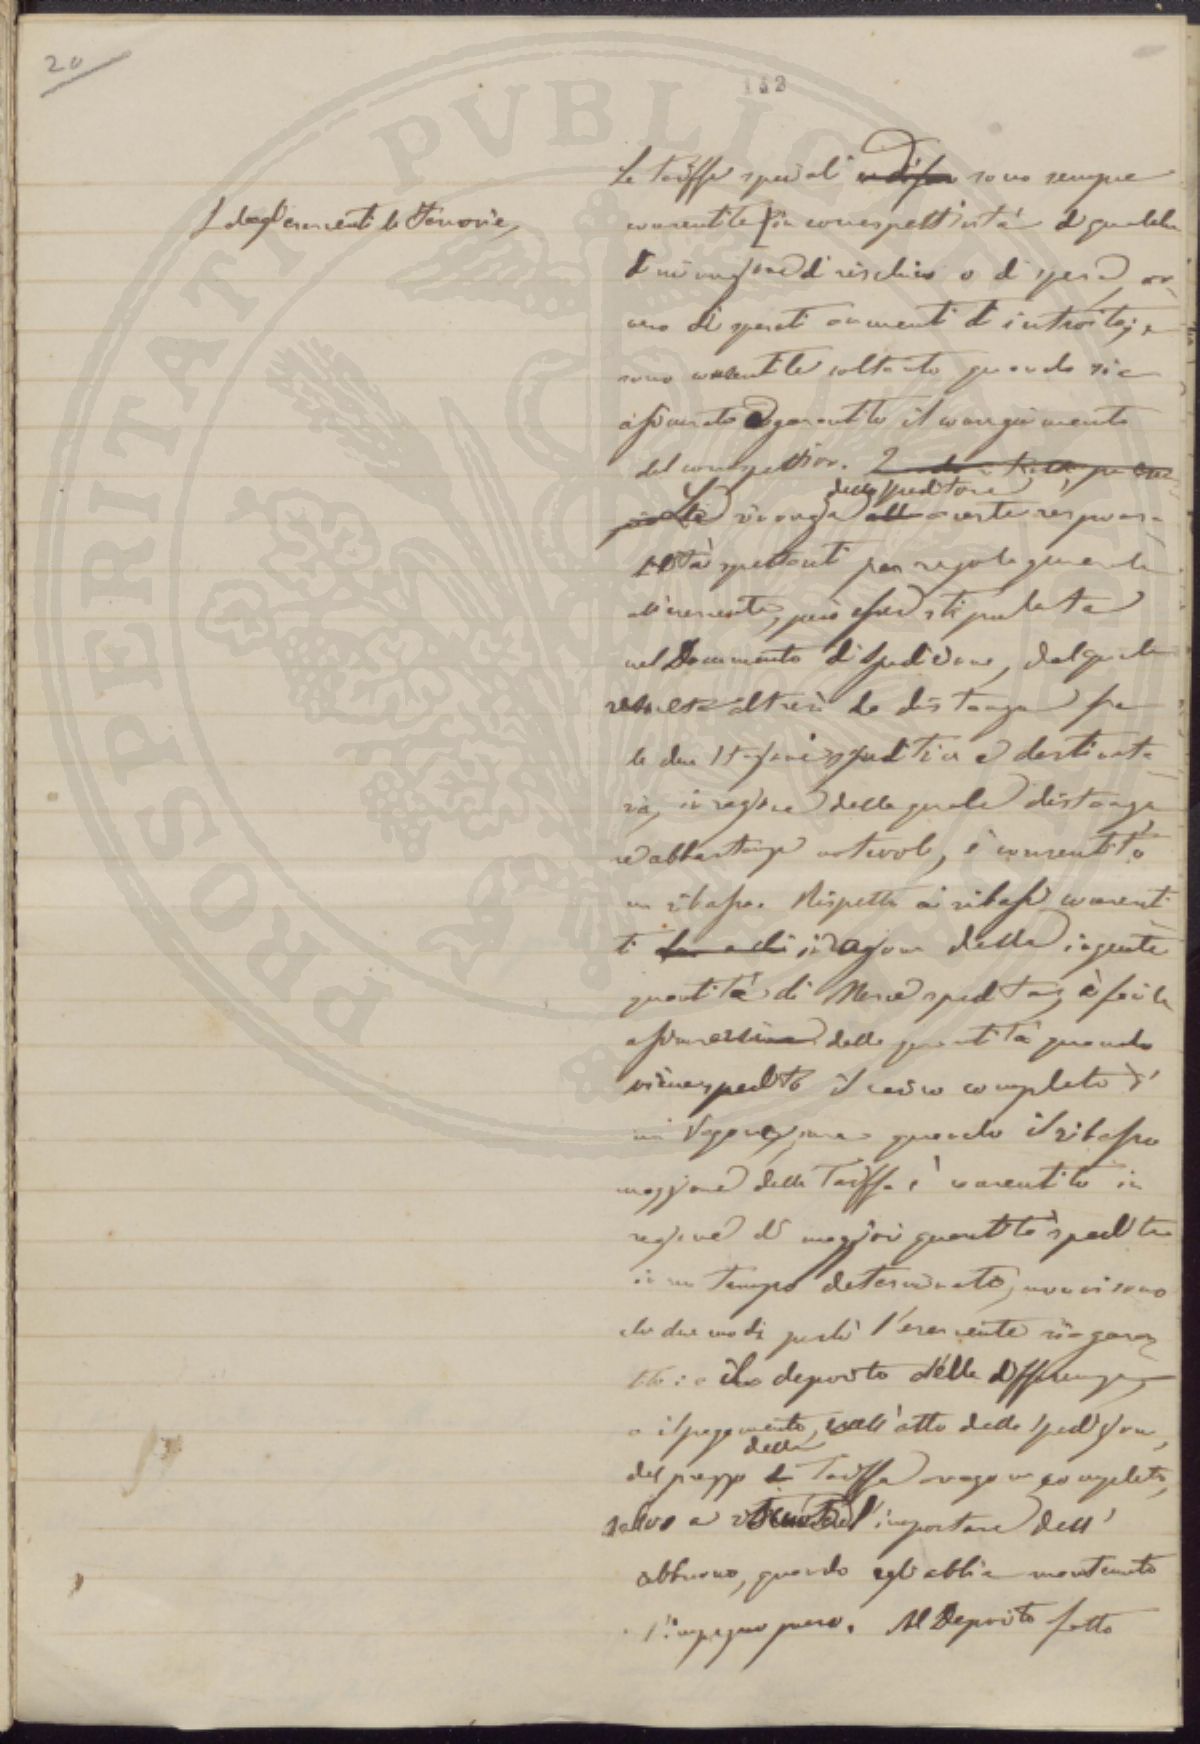 20
132
PUBLICAE PROSPERITATI
Le Tariffe speciali sono sempre
[dagl'esercenti le Ferrovie,
consentite in correspettività di qualche
diminuzione di rischio o di spesa, ov-
vero di sperati aumenti di introito; e
sono consentite soltanto quando sia
assicurato e garantito il conseguimento
del correspettivo.
dello speditore
La rinunzia a certe respon-
sabilità spettanti per regola generale
all'esercente, può esser stipulata
nel Documento di Spedizione, dal quale
resulta altresì la distanza fra
le due Stazioni speditrice e destinata-
ria, in ragione della quale distanza
se abbastanza notevole, è consentito
un ribasso. Rispetto ai ribassi consenti-
ti in ragione della ingente
quantità di Merce spedita, è facile
assicurarsi della quantità quando
viene spedito il carico completo d'
un Vagone; ma quando il ribasso
maggiore della Tariffa è consentito in
ragione di maggior quantità spedita
in un tempo determinato, non vi sono
che due modi perché l'esercente sia garan-
tito: o il deposito della differenza,
o il pagamento, all'atto della Spedizione,
della
del prezzo Tariffa a vagone completo,
salvo a l'importare dell'
abbuono, quando egli abbia mantenuto
l'impegno preso. Al Deposito fatto